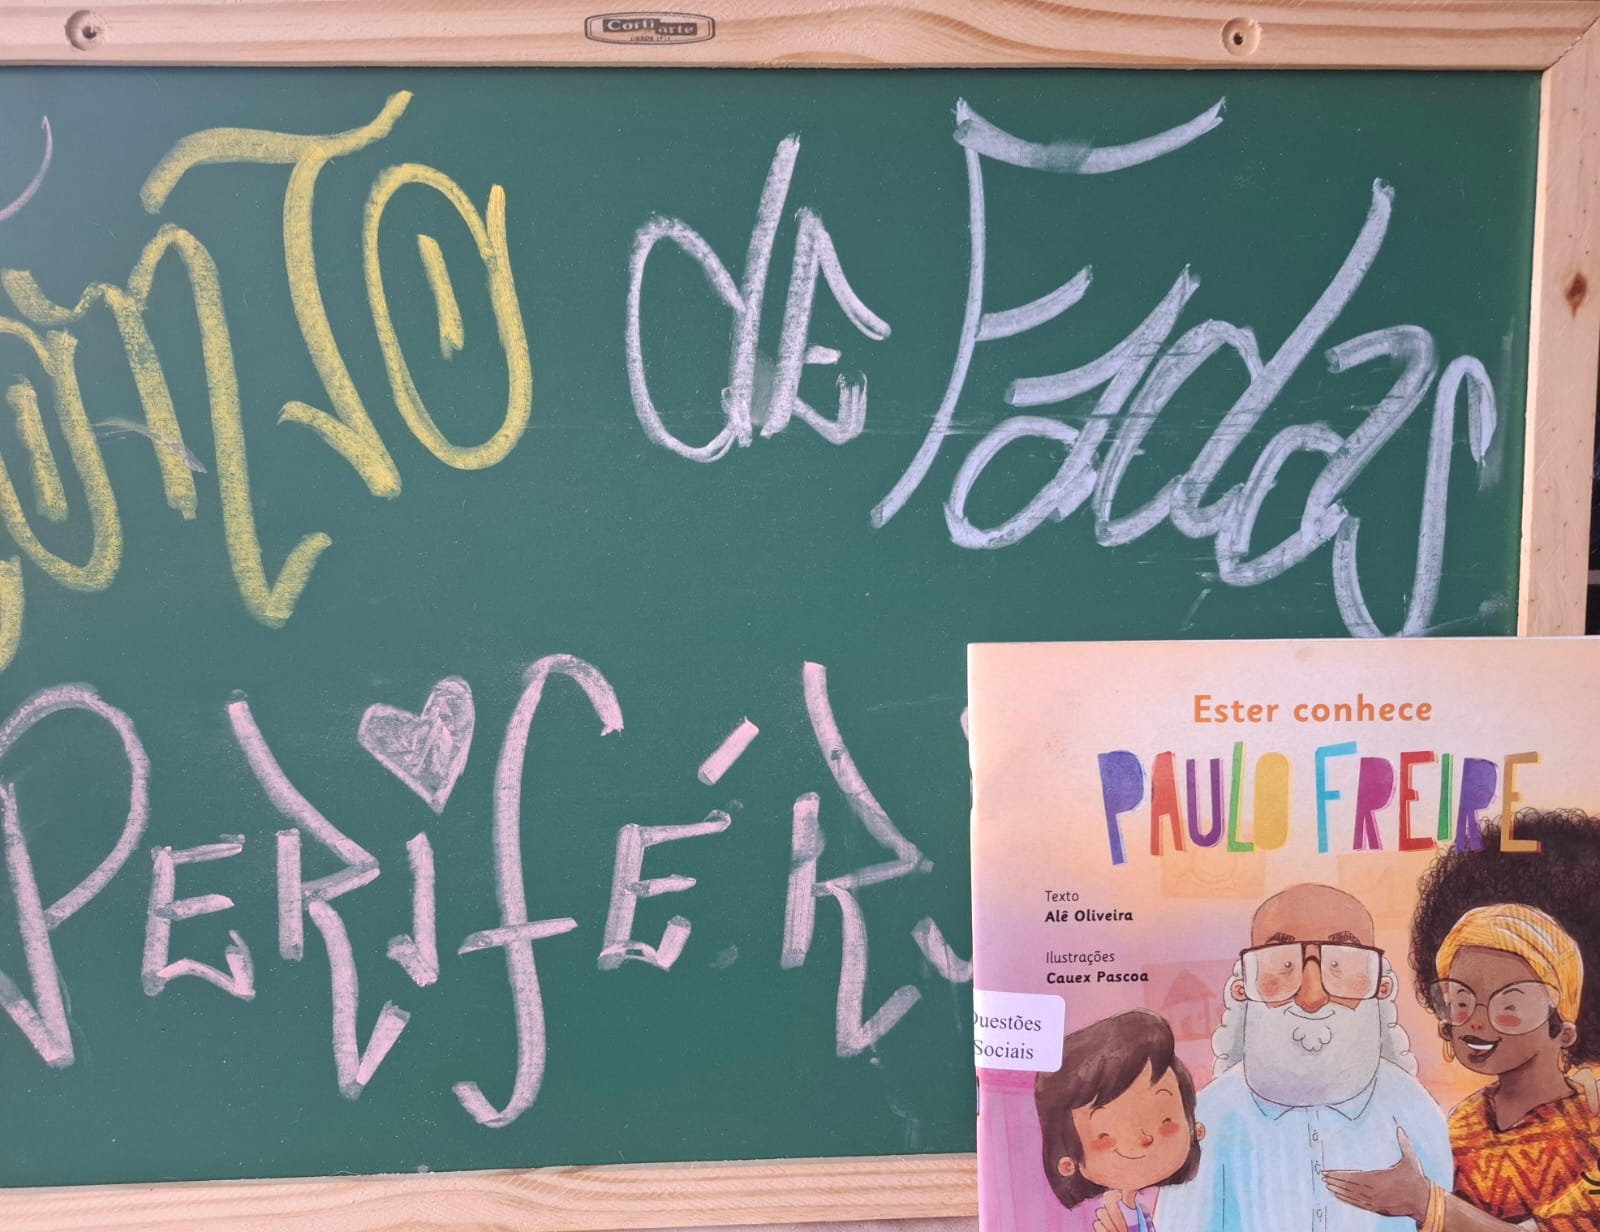 Corti arte
onto de Fadas
Perifér
Ester conhece
PAULO FREIRE
Texto
Alê Oliveira
Ilustrações
Cauex Pascoa
Questões
Sociais